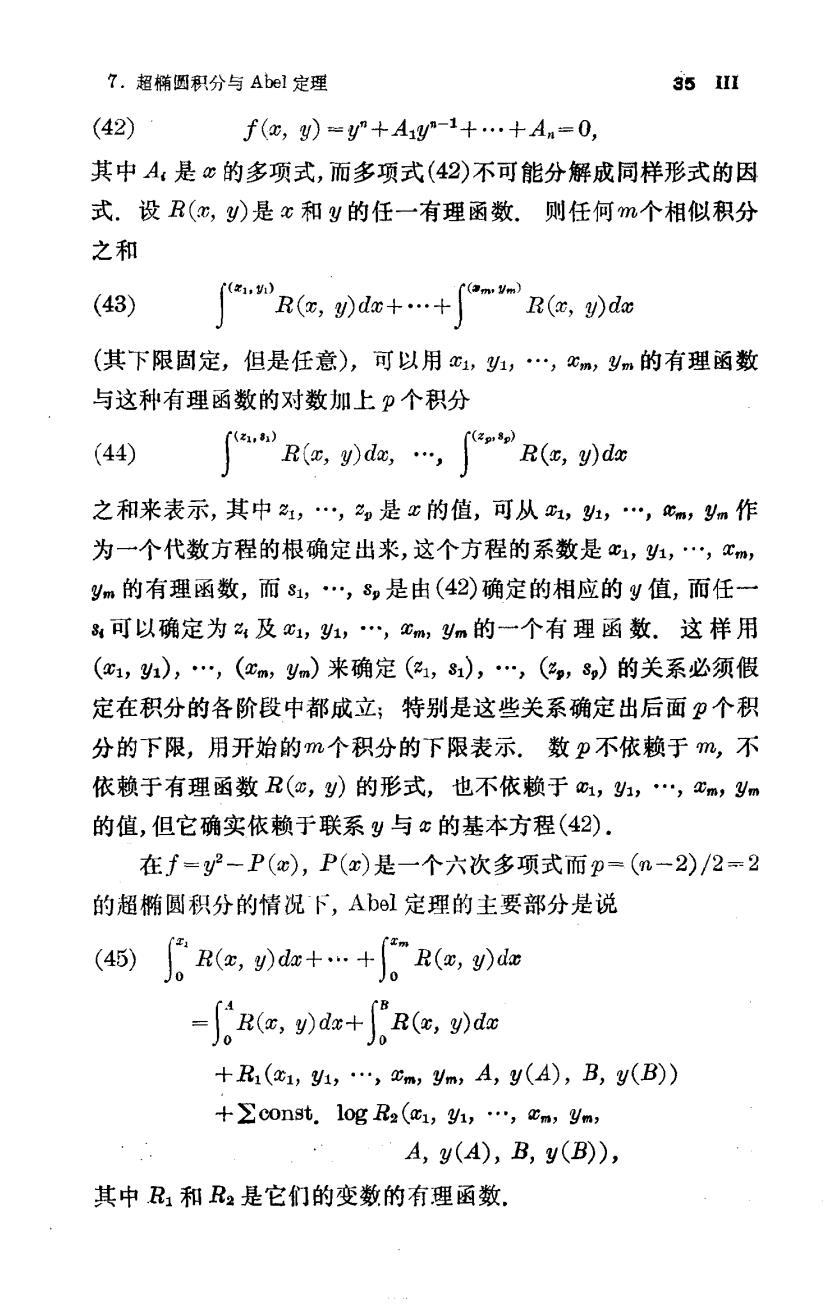 7. 超椭圆积分与 Abel 定理 35 III
(42) f(x, y) = yⁿ + A₁yⁿ⁻¹ + ⋯ + Aₙ = 0,
其中 Aᵢ 是 x 的多项式, 而多项式(42)不可能分解成同样形式的因
式. 设 R(x, y)是 x 和 y 的任一有理函数. 则任何 m 个相似积分
之和
(43) ∫^(x₁, y₁) R(x, y)dx + ⋯ + ∫^(xₘ, yₘ) R(x, y)dx
(其下限固定, 但是任意), 可以用 x₁, y₁, ⋯, xₘ, yₘ 的有理函数
与这种有理函数的对数加上 p 个积分
(44) ∫^(z₁, s₁) R(x, y)dx, ⋯, ∫^(zₚ, sₚ) R(x, y)dx
之和来表示, 其中 z₁, ⋯, zₚ 是 x 的值, 可从 x₁, y₁, ⋯, xₘ, yₘ 作
为一个代数方程的根确定出来, 这个方程的系数是 x₁, y₁, ⋯, xₘ,
yₘ 的有理函数, 而 s₁, ⋯, sₚ 是由(42)确定的相应的 y 值, 而任一
sᵢ 可以确定为 zᵢ 及 x₁, y₁, ⋯, xₘ, yₘ 的一个有理函数. 这样用
(x₁, y₁), ⋯, (xₘ, yₘ) 来确定 (z₁, s₁), ⋯, (zₚ, sₚ) 的关系必须假
定在积分的各阶段中都成立; 特别是这些关系确定出后面 p 个积
分的下限, 用开始的 m 个积分的下限表示. 数 p 不依赖于 m, 不
依赖于有理函数 R(x, y) 的形式, 也不依赖于 x₁, y₁, ⋯, xₘ, yₘ
的值, 但它确实依赖于联系 y 与 x 的基本方程(42).
在 f = y² − P(x), P(x)是一个六次多项式而 p = (n−2)/2 = 2
的超椭圆积分的情况下, Abel 定理的主要部分是说
(45) ∫₀^x₁ R(x, y)dx + ⋯ + ∫₀^xₘ R(x, y)dx
= ∫₀^A R(x, y)dx + ∫₀^B R(x, y)dx
+ R₁(x₁, y₁, ⋯, xₘ, yₘ, A, y(A), B, y(B))
+ ∑const. log R₂(x₁, y₁, ⋯, xₘ, yₘ,
A, y(A), B, y(B)),
其中 R₁ 和 R₂ 是它们的变数的有理函数.